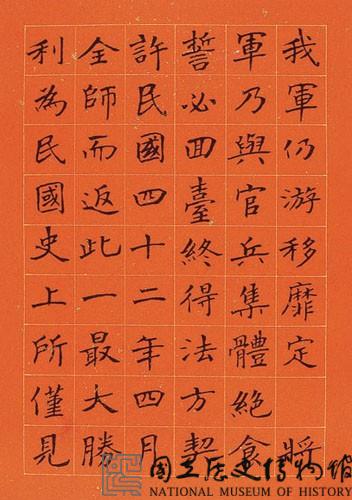 我軍仍游移靡定　將
軍乃與官兵集體絕食
誓必回臺終得法方契
許民國四十二年四月
全師而返此一最大勝
利為民國史上所僅見
國立歷史博物館
NATIONAL MUSEUM OF HISTORY